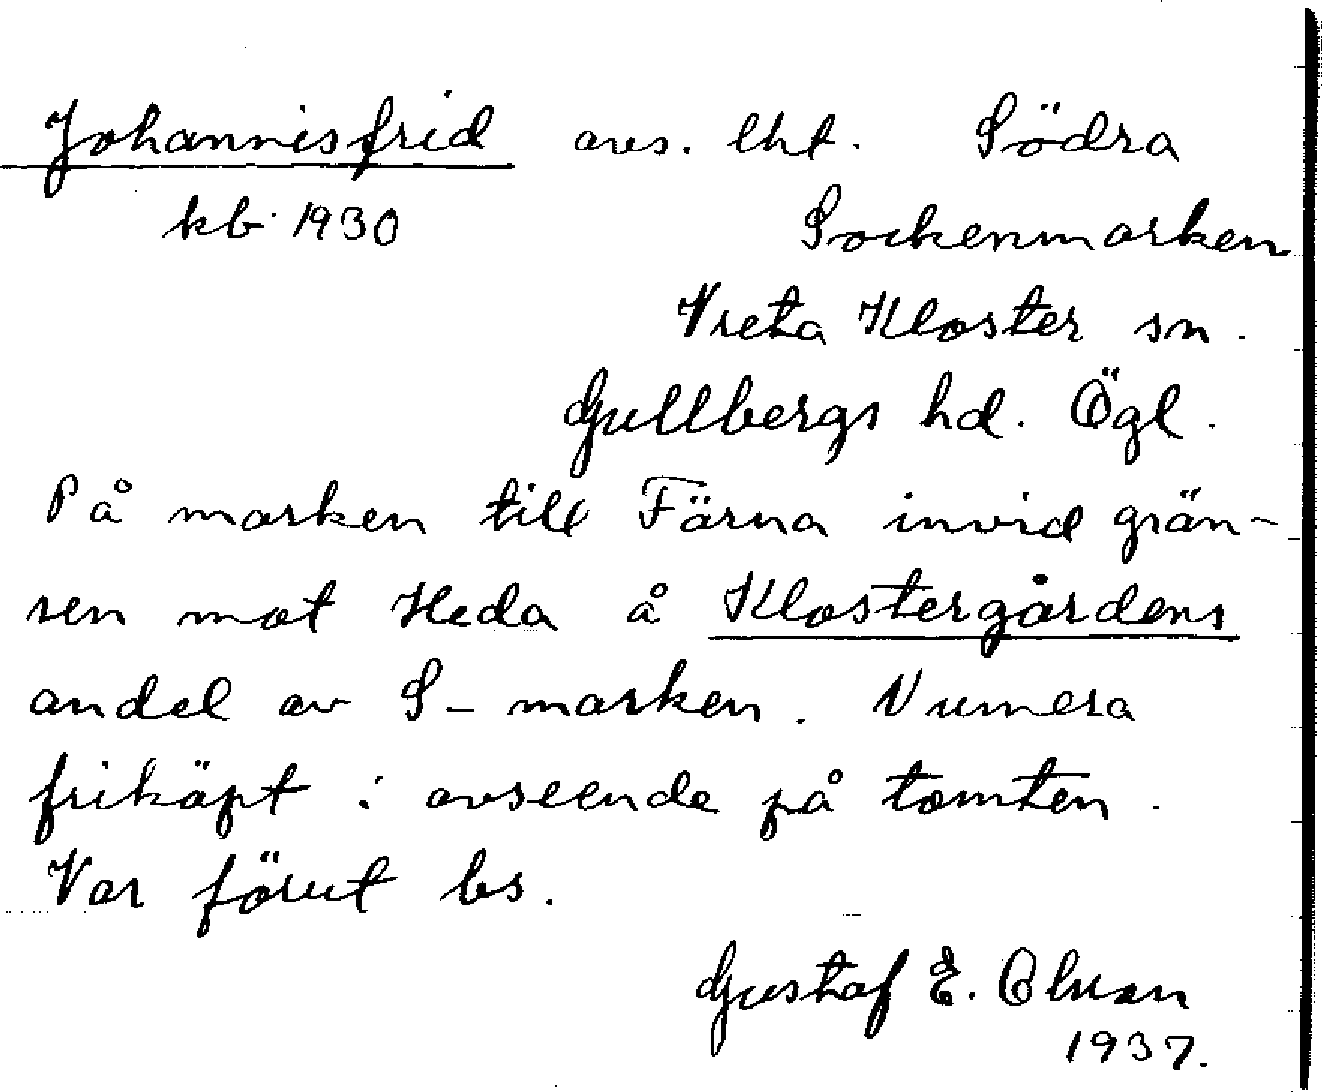 Johannisfrid avs. lht. Södra
kb. 1930 Sockenmarken
Vreta Kloster sn.
Gullbergs hd. Ögl.
På marken till Färna invid grän-
sen mot Heda å Klostergårdens
andel av S-marken. Numera
friköpt i avseende på tomten.
Var förut bs.
Gustaf E. Olsson
1937.